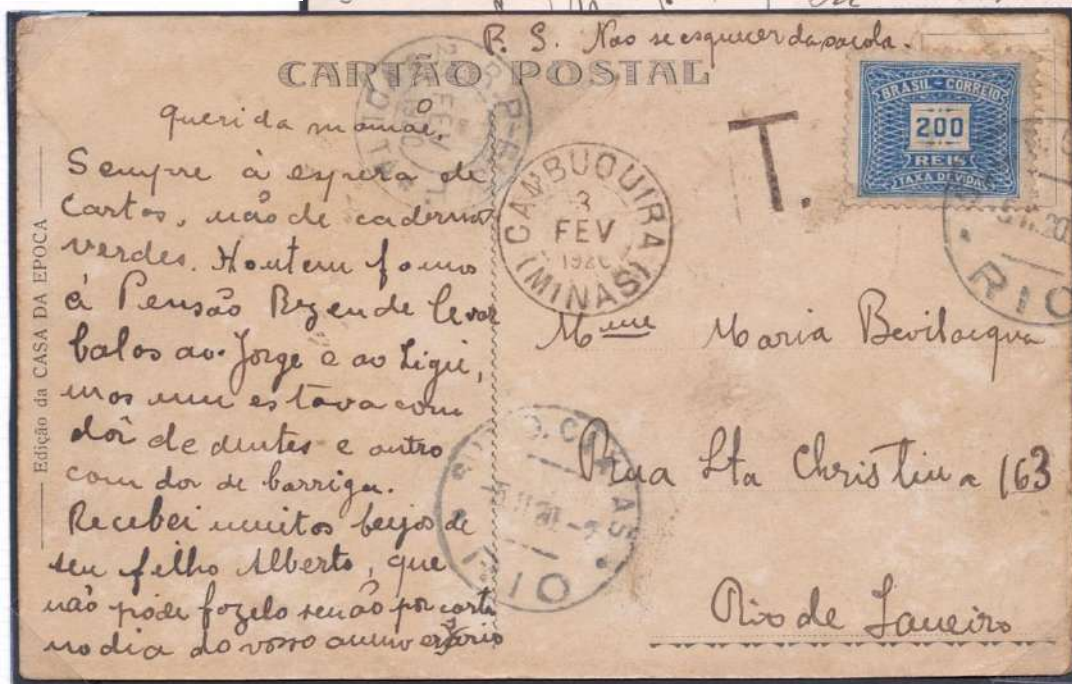 P. S. Nao se esquecer da sacola.
CARTÃO POSTAL
Querida mamãe,
Sempre à espera de
cartas, não de cadernos
verdes. Hontem fomos
á Pensão Rezende levar
balas ao Jorge e ao Ligie,
mas um estava com
dôr de dentes e outro
com dor de barriga.
Recebei muitos beijos de
seu filho Alberto, que
não póde fazelo senão por carta
no dia do vosso anniversario
Edição da CASA DA EPOCA
CAMBUQUIRA
3
FEV
(MINAS)
T.
BRASIL-CORREIO
200
REIS
TAXA DEVIDA
RIO
Mme Maria Bevilacqua
Rua Sta Christina 163
Rio de Janeiro
RIO